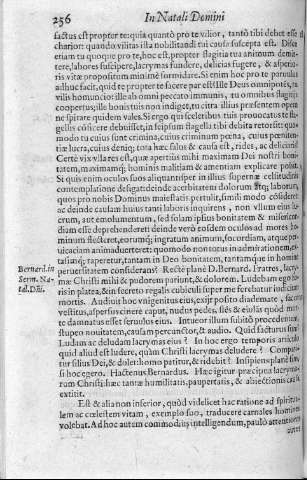 256 In Natali Domini
factus est propter te: quia quantò pro te vilior, tantò tibi debet esse
charior: quando vilitas ista nobilitandi tui causa suscepta est. Disce
etiam tu quoque pro te, hoc est, propter flagitia tua animum demit-
tere, labores suscipere, lacrymas fundere, delicias fugere, & asperio-
ris vitæ propositum minimè formidare. Si enim hoc pro te parvulus
adhuc facit, quid te propter te facere par est? Ille Deus omnipotēs, tu
vilis homuncio: ille ab omni peccato immunis, tu omnibus flagitijs
coopertus; ille bonis tuis non indiget, tu citra illius præsentem opem
ne spirare quidem vales. Si ergo qui sceleribus tuis provocatus te
modo tu cuius sunt crimina, cuius criminum pœna, cuius peniten-
tiæ lucra, cuius deniq; tota hæc salus & causa est, rides, ac deliciaris?
Certè vix ulla res est, quæ apertiùs mihi maximam Dei nostri boni-
tatem, maximamq; hominis malitiam & amentiam explicare possit.
Si quis enim oculos suos aliquantisper in illius supernæ celsitudinis
contemplatione defigat: deinde acerbitatem dolorum atq; laborum,
quos pro nobis Dominus maiestatis pertulit, simili modo consideret
ac deinde causam huius tanti laboris inquirens, non ullum eius lu-
crum, aut emolumentum, sed solam ipsius bonitatem & misericor-
diam esse deprehenderet: deinde verò eosdem oculos ad mores ho-
minum flecteret, eorumq; ingratum animum, socordiam, atque per-
vicaciam animadverteret: quomodo non totus in admirationem, ec-
tasimq; raperetur, tantam in Dei bonitatem, tantamque in hominis
perversitatem considerans? Rectè planè D. Bernard. Fratres, lacry-
Bernard. in
Serm. Na-
tal. Dñi.
mæ Christi mihi & pudorem pariunt, & dolorem. Ludebam ego
ris in platea, & in secreto regalis cubiculi super me ferebatur iudicium
mortis. Audivit hoc unigenitus eius, exijt posito diademate, sacco
vestitus, aspersus cinere caput, nudus pedes, flēs & eiulās quòd mor-
te damnatus esset servulus eius. Intueor illum subitò procedentem,
stupeo novitatem, causam percunctor, & audio. Quid facturus sum?
Ludam ac deludam lacrymas eius? In hoc ergo temporis articulo
quid aliud est ludere, quàm Christi lacrymas deludere?
tur filius Dei, & dolet homo patitur, & ridebit? Insipiens planè
si hoc egero. Hactenus Bernardus. Hæc igitur præcipua
rum Christi: hæc tantæ humilitatis, paupertatis, & abiectionis causa
extitit.
Est & alia non inferior, quòd videlicet hac ratione ad spiritua-
lem ac cœlestem vitam, exemplo suo, traducere carnales homines
volebat. Ad hoc autem commodiùs intelligendum, paulò attentiore